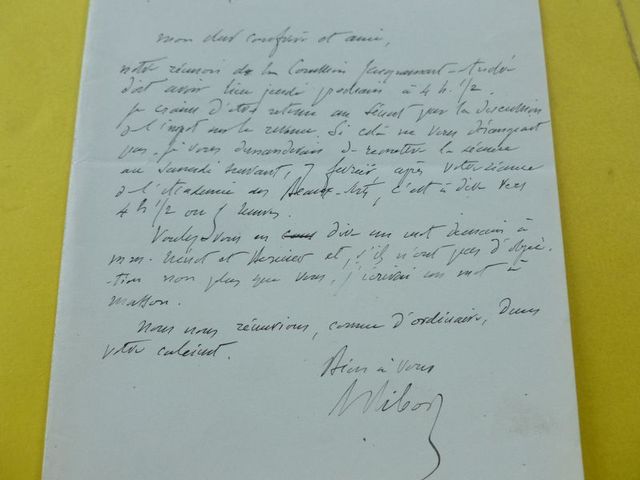 mon cher confrère et ami,
notre réunion de la Commission Jacquemart-André
doit avoir lieu jeudi prochain à 4 h. 1/2.
Je crains d'être retenu au Sénat par la discussion
de l'impôt sur le revenu. Si cela ne vous dérangeait
pas, je vous demanderais de remettre la séance
au samedi suivant, 7 février, après votre séance
de l'Académie des Beaux-Arts, c'est à dire vers
4 h 1/2 ou 5 heures.
Voulez-vous en dire un mot demain à
mm. Nénot et et, s'ils n'ont pas d'objec-
-tion non plus que vous, j'écrirai un mot à
Masson.
Nous nous réunirions, comme d'ordinaire, dans
votre cabinet.
Bien à vous
Ribot